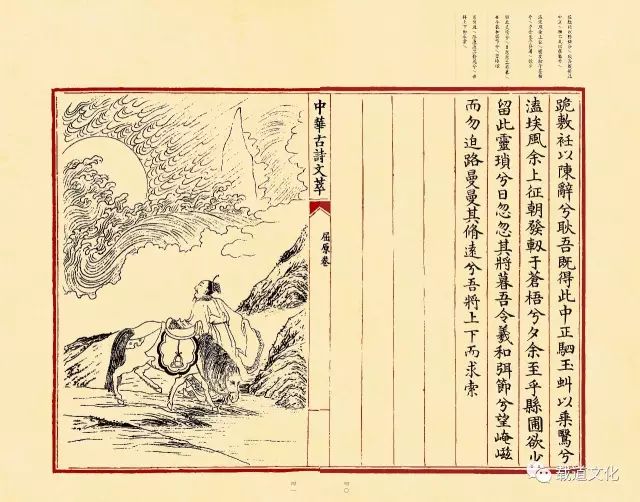 跪敷衽以陳辭兮耿吾既得此中正駟玉虬以乘鷖兮
溘埃風余上征朝發軔于蒼梧兮夕余至乎縣圃欲少
留此靈瑣兮日忽忽其將暮吾令羲和弭節兮望崦嵫
而勿迫路曼曼其脩遠兮吾將上下而求索
中華古詩文萃
屈原卷
四〇
四一
载道文化